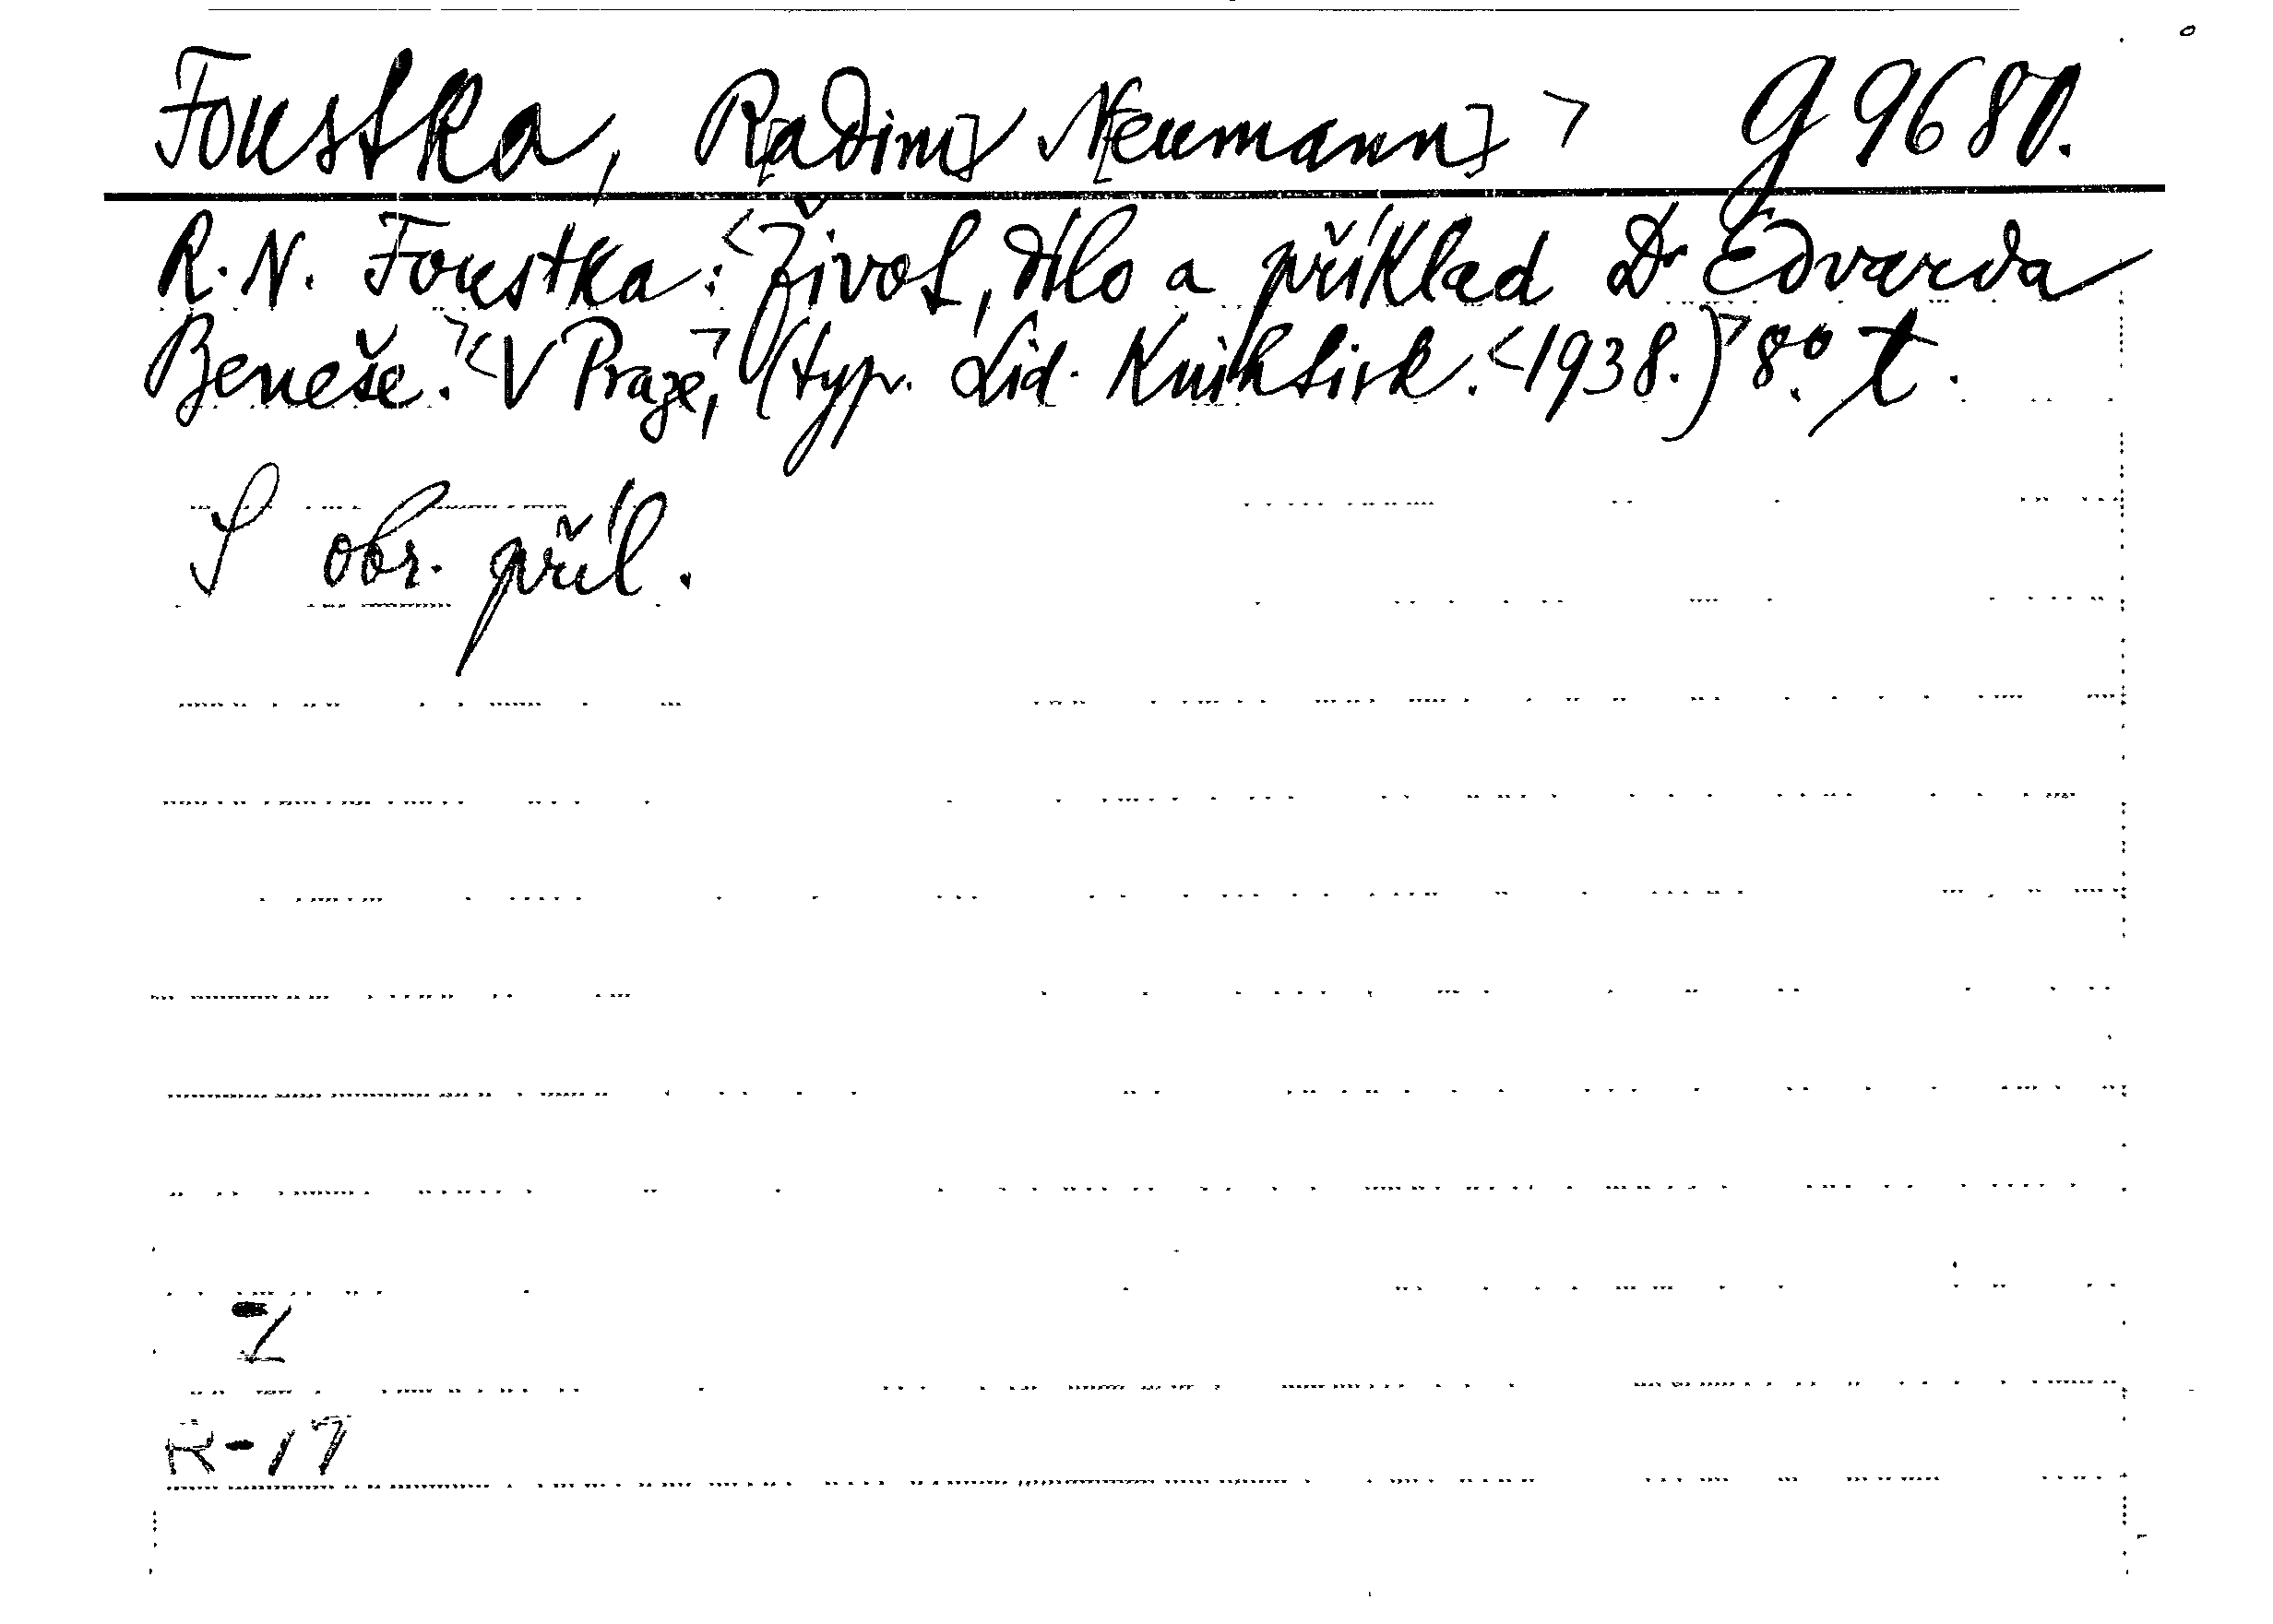 Foustka, R[adim] N[eumann] > g 9680.
R. N. Foustka: <Život, dílo a příklad Dr Edvarda
Beneše.> <V Praze,> (typ. Lid. Knihtisk. <1938.)> 8.° t.
S obr. příl.
Z
R-17